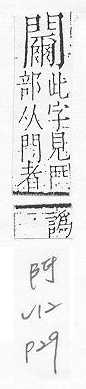 此字見网
部从門者
譌
V12
P29